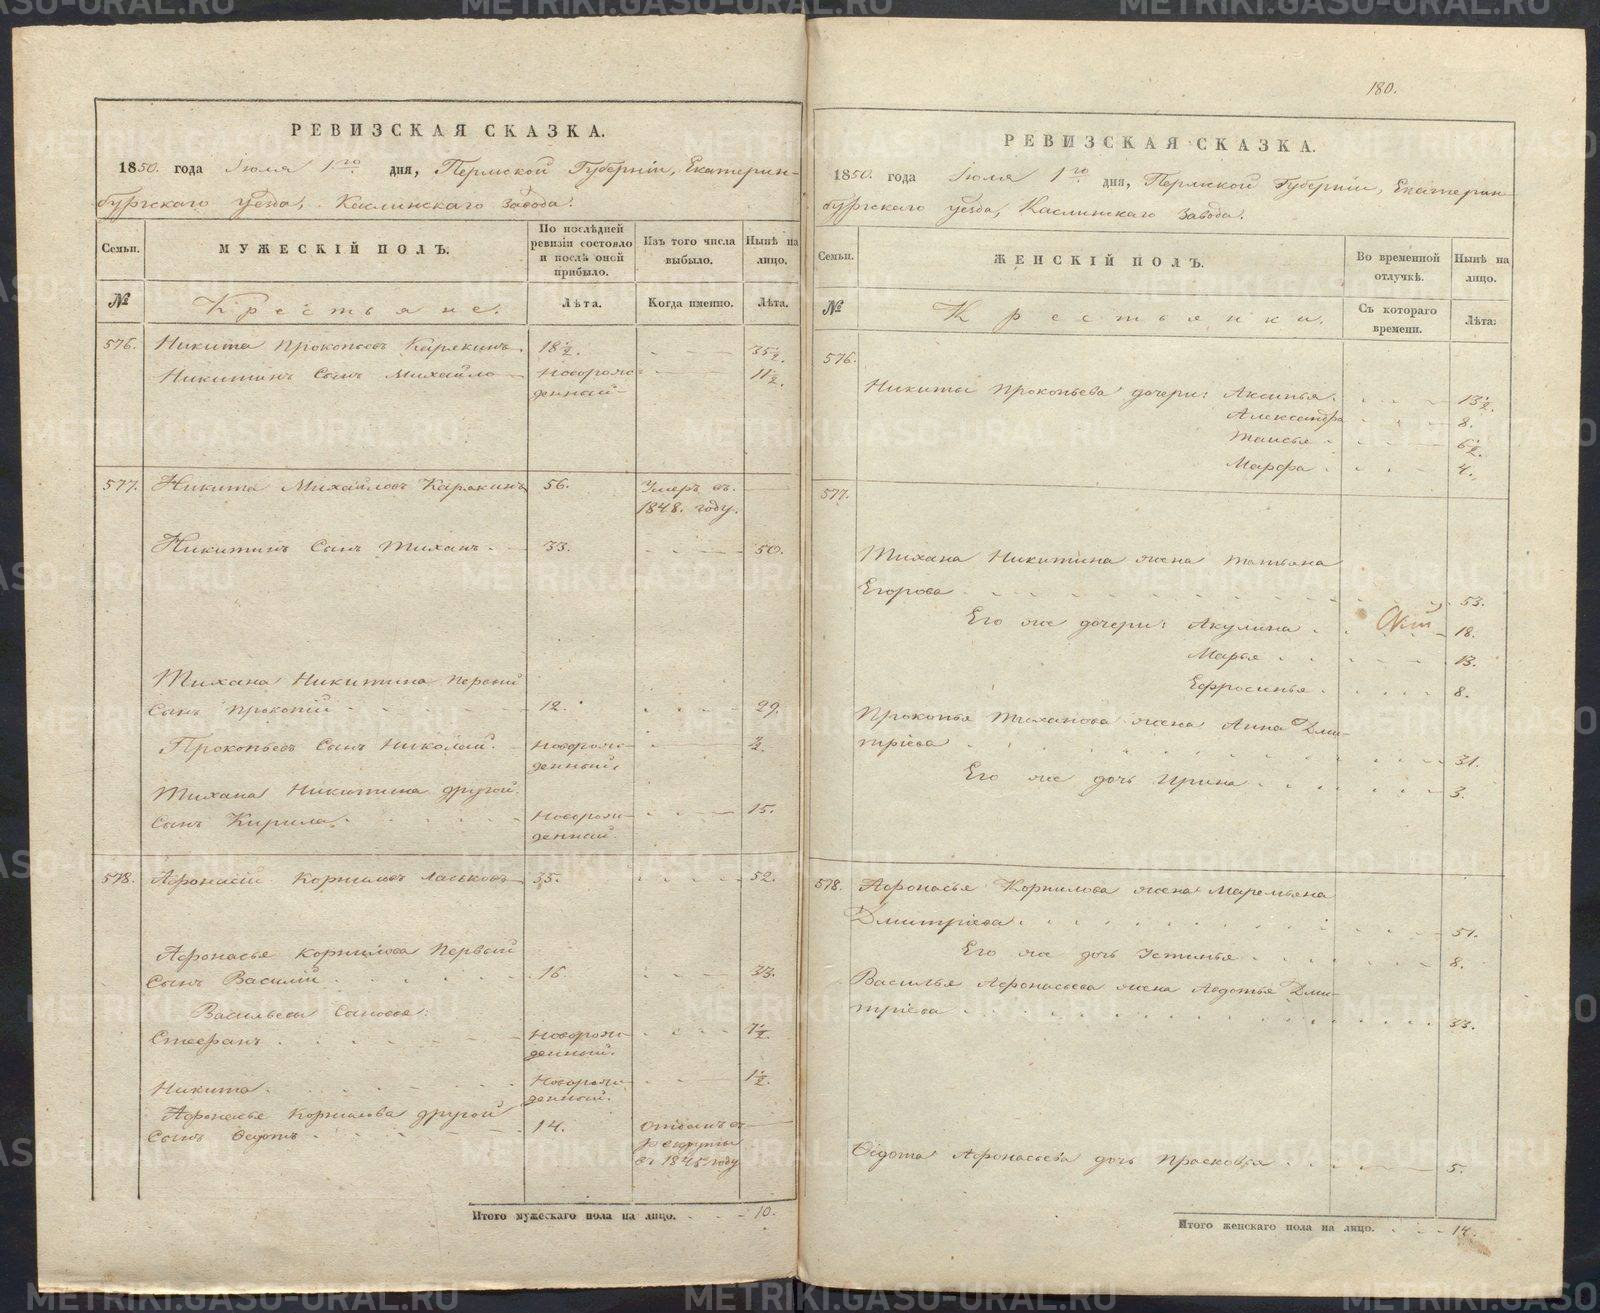 180.
РЕВИЗСКАЯ СКАЗКА.
1850. года Іюля 1го дня, Пермской Губерніи, Екатерин-
бургскаго уезда, Каслинскаго завода.
Семьи. МУЖЕСКІЙ ПОЛЪ. По послѣдней ревизіи состояло и послѣ оной прибыло. Изъ того числа выбыло. Нынѣ на лицо.
№ Крестьяне. Лѣта. Когда именно. Лѣта.
576. Никита Прокопьевъ Карякинъ 18½. 35½.
Никитинъ Сынъ Михайло Новорож- 11½.
денный
577. Никита Михайловъ Карякинъ 56. Умеръ въ
1848. году.
Никитинъ Сынъ Тиханъ 33. 50.
Тихана Никитина первый
Сынъ Прокопій 12. 29.
Прокопьевъ Сынъ Николай. Новорож- ½.
денный
Тихана Никитина другой
Сынъ Кирила Новорож- 15.
денный.
578. Афонасій Корниловъ Ласьковъ 35. 52.
Афонасья Корнилова Первый
Сынъ Василій 16. 33.
Васильевы Сыновья:
Стефанъ Новорож- 7½.
денный.
Никита Новорож- 1½.
денный.
Афонасья Корнилова другой
Сынъ Федотъ 14. Отданъ въ
рекруты
въ 1845 году
Итого мужескаго пола на лицо. 10.
РЕВИЗСКАЯ СКАЗКА.
1850. года Іюля 1го дня, Пермской Губерніи, Екатерин-
бургскаго уезда, Каслинскаго завода.
Семьи. ЖЕНСКІЙ ПОЛЪ. Во временной отлучкѣ. Нынѣ на лицо.
№ Крестьянки. Съ котораго времени. Лѣта.
576.
Никиты Прокопьева дочери: Аксинья. 13½.
Александра 8.
Таисья 6½.
Марфа 4.
577.
Тихана Никитина жена Татьяна
Егорова 53.
Его же дочери: Акулина 18.
Марья 13.
Ефросинья 8.
Прокопья Тиханова жена Анна Дми-
тріева 31.
Его же дочь Ирина 3.
578. Афонасья Корнилова жена Маремьяна
Дмитріева 51.
Его же дочь Устинья 8.
Василья Афонасьева жена Авдотья Дми-
тріева 33.
Федота Афонасьева дочь Прасковья 5.
Итого женскаго пола на лицо. 14.
METRIKI.GASO-URAL.RU